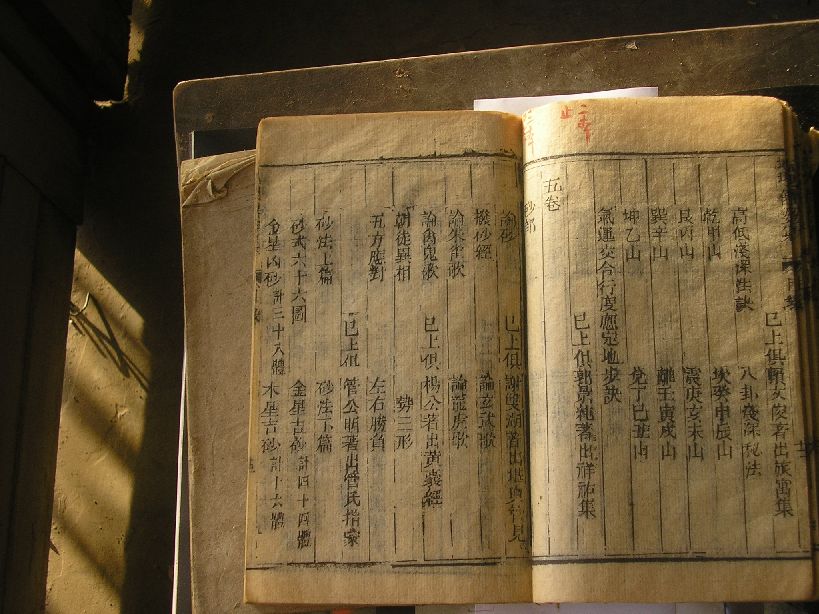 巳上俱顧文俊著出旅寓集
高低淺深法訣
八卦淺深秘法
乾甲山
坎癸申辰山
艮丙山
震庚亥未山
巽辛山
離壬寅戌山
坤乙山
兌丁巳丑山
氣運交合行度應宛地步訣
巳上俱郭景純著出祥

集
五卷
砂部
論砂
巳上俱謝雙湖著出堪輿
見
撥砂經
論玄武歌
論朱雀歌
論龍虎歌
論禽鬼歌
巳上俱楊公著出黃囊經
朝徒異相
勢三形
五方應對
左右勝負
巳上俱
管公明著出管氏指蒙
砂法上篇
砂法下篇
砂式六十六圖
金星吉砂計四十四體
金星凶砂計三十八體
木星吉砂計十六體